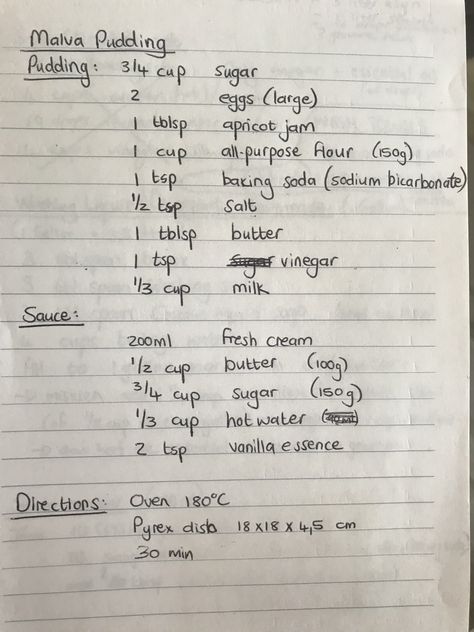 Malva Pudding
Pudding: 3/4 cup sugar
2 eggs (large)
1 tblsp apricot jam
1 cup all-purpose flour (150g)
1 tsp baking soda (sodium bicarbonate)
1/2 tsp salt
1 tblsp butter
1 tsp sugar vinegar
1/3 cup milk
Sauce:
200ml fresh cream
1/2 cup butter (100g)
3/4 cup sugar (150g)
1/3 cup hot water
2 tsp vanilla essence
Directions: Oven 180°C
Pyrex dish 18x18x4,5 cm
30 min